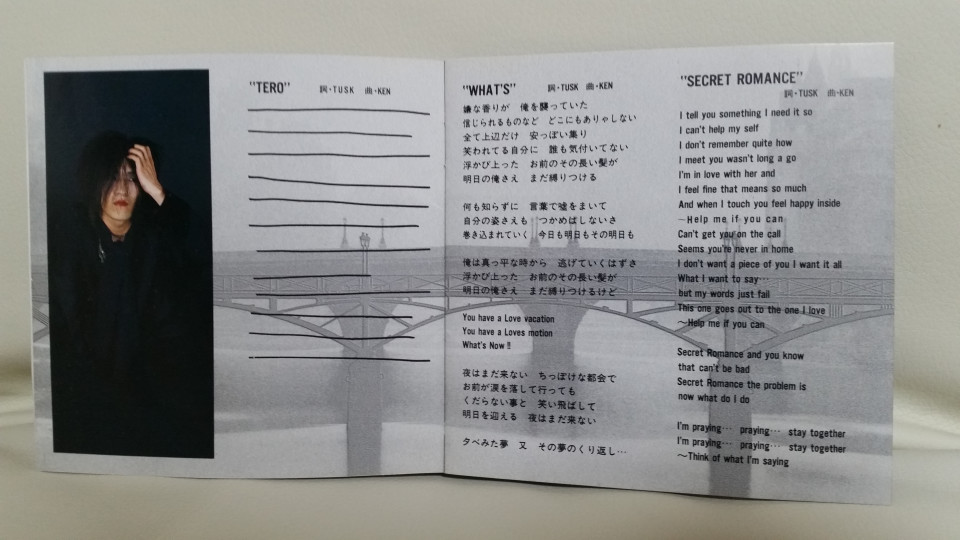 "TERO" 詞・TUSK 曲・KEN
"WHAT'S" 詞・TUSK 曲・KEN
嫌な香りが 俺を襲っていた
信じられるものなど どこにもありゃしない
全て上辺だけ 安っぽい集り
笑われてる自分に 誰も気付いてない
浮かび上った お前のその長い髪が
明日の俺さえ まだ縛りつける
何も知らずに 言葉で嘘をまいて
自分の姿さえも つかめばしないさ
巻き込まれていく 今日も明日もその明日も
俺は真っ平な時から 逃げていくはずさ
浮かび上った お前のその長い髪が
明日の俺さえ まだ縛りつけるけど
You have a Love vacation
You have a Loves motion
What's Now!!
夜はまだ来ない ちっぽけな都会で
お前が涙を落して行っても
くだらない事と 笑い飛ばして
明日を迎える 夜はまだ来ない
夕べみた夢 又 その夢のくり返し…
"SECRET ROMANCE"
詞・TUSK 曲・KEN
I tell you something I need it so
I can't help my self
I don't remember quite how
I meet you wasn't long a go
I'm in love with her and
I feel fine that means so much
And when I touch you feel happy inside
〜Help me if you can
Can't get you on the call
Seems you're never in home
I don't want a piece of you I want it all
What I want to say…
but my words just fail
This one goes out to the one I love
〜Help me if you can
Secret Romance and you know
that can't be bad
Secret Romance the problem is
now what do I do
I'm praying… praying… stay together
I'm praying… praying… stay together
〜Think of what I'm saying